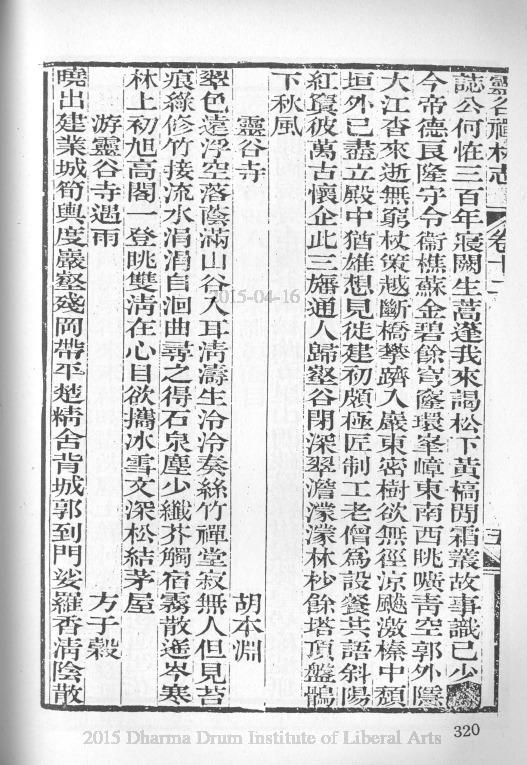 靈谷禪林志 卷十二 五
誌公何怪三百年寢闕生蒿蓬我來謁松下黃槁閒霜叢故事識已少
今帝德良隆守令衞樵蘇金碧餘穹窿環峯嶂東南西眺曠靑空郭外隱
大江杳來逝無窮杖策越斷橋攀躋入巖東密樹欲無徑涼颷激榛中頹
垣外已盡立殿中猶雄想見徙建初頗極匠制工老僧爲設餐共語斜陽
紅寘彼萬古懷企此三旛通人歸壑谷閉深翠澹濛濛林杪餘塔頂盤鶻
下秋風
靈谷寺 胡本淵
翠色遠浮空落蔭滿山谷入耳淸濤生泠泠奏絲竹禪堂寂無人但見苔
痕綠修竹接流水涓涓自洄曲尋之得石泉塵少纖芥觸宿霧散遙岑寒
林上初旭高閣一登眺雙淸在心目欲攜冰雪文深松結茅屋
游靈谷寺遇雨 方子穀
曉出建業城筍輿度巖壑殘岡帶平楚精舍背城郭到門娑羅香淸陰散
320
2015-04-16
2015 Dharma Drum Institute of Liberal Arts